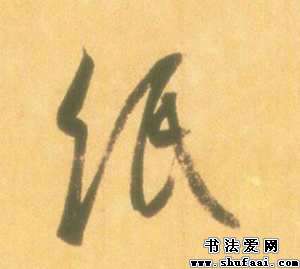 纸
书法爱网
www.shufaai.com